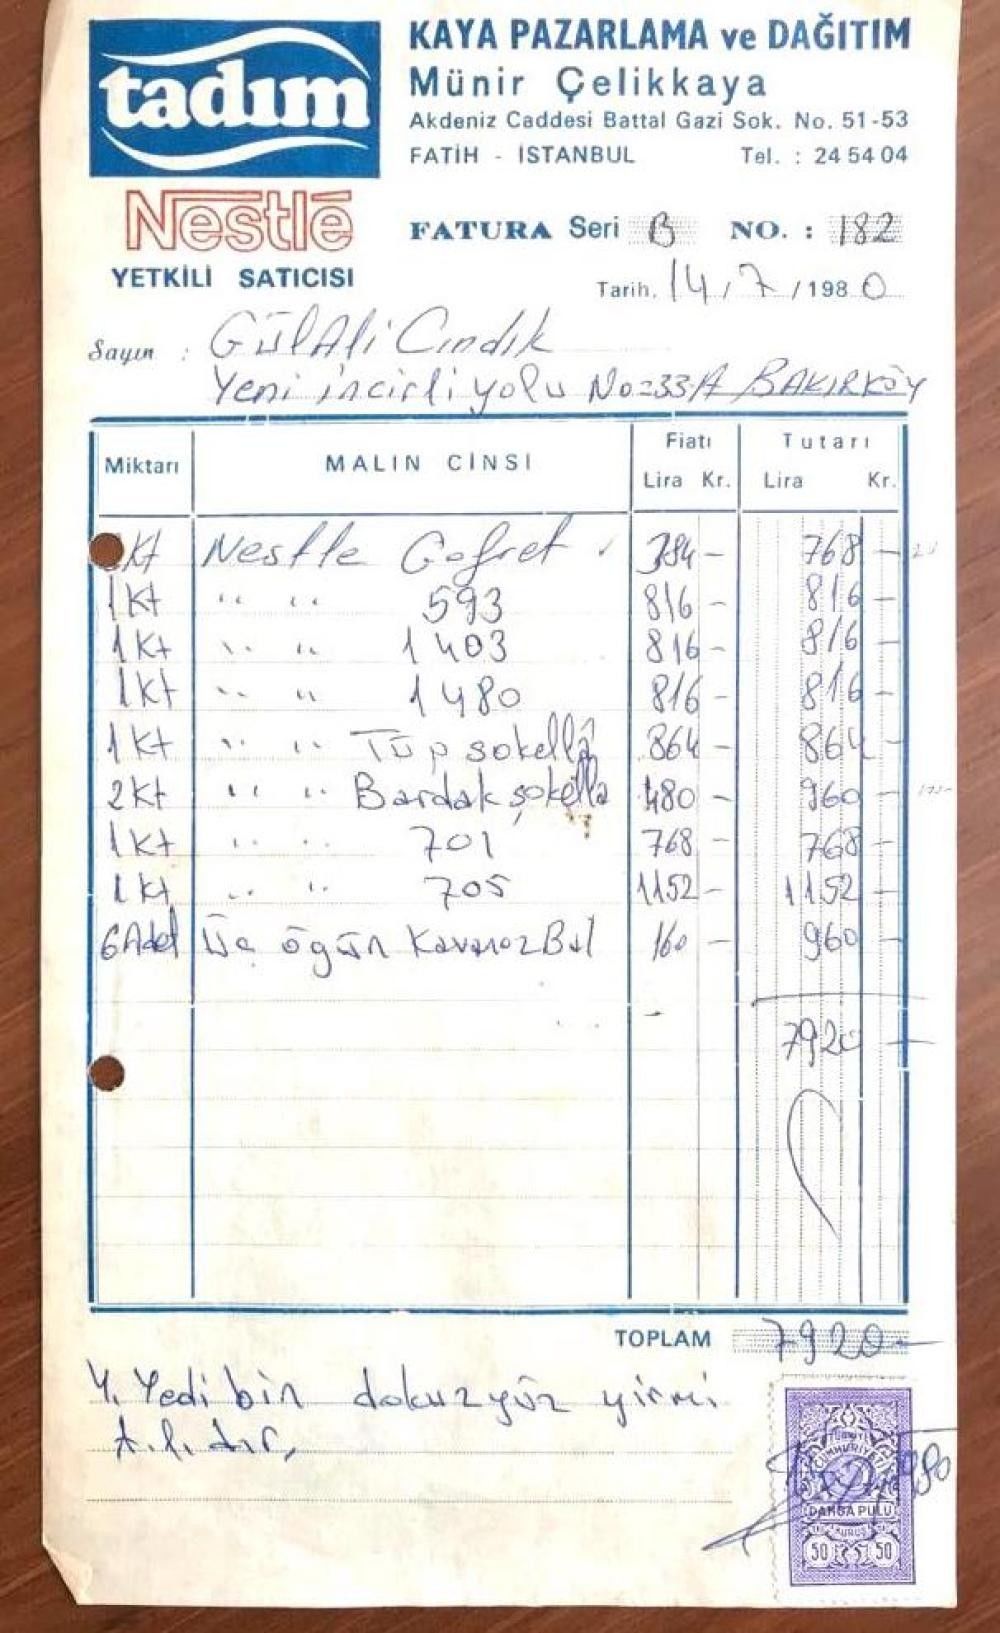 tadım
KAYA PAZARLAMA ve DAĞITIM
Münir Çelikkaya
Akdeniz Caddesi Battal Gazi Sok. No. 51-53
FATİH - İSTANBUL Tel. : 24 54 04
Nestlé
YETKİLİ SATICISI
FATURA Seri B NO. : 182
Tarih. 14 / 7 / 1980
Sayın : GülAli Cındık
Yeni incirli yolu No=33/A BAKIRKÖY
Miktarı MALIN CİNSİ Fiatı Tutarı
Lira Kr. Lira Kr.
Kt Nestle Gofret 384 - 768 -
1Kt " " 593 816 - 816 -
1Kt " " 1403 816 - 816 -
1Kt " " 1480 816 - 816 -
1Kt " " Tüp şokella 864 - 864 -
2Kt " " Bardak şokella 480 - 960 -
1Kt " " 701 768 - 768 -
1Kt " " 705 1152 - 1152 -
6 Adet Üç öğün Kavanoz Bal 160 - 960 -
7920 -
TOPLAM 7920 -
Y. Yedi bin dokuzyüz yirmi
t.l. dır,
CUMHURİYETİ
1980
DAMGA PULU
KURUŞ
50 50